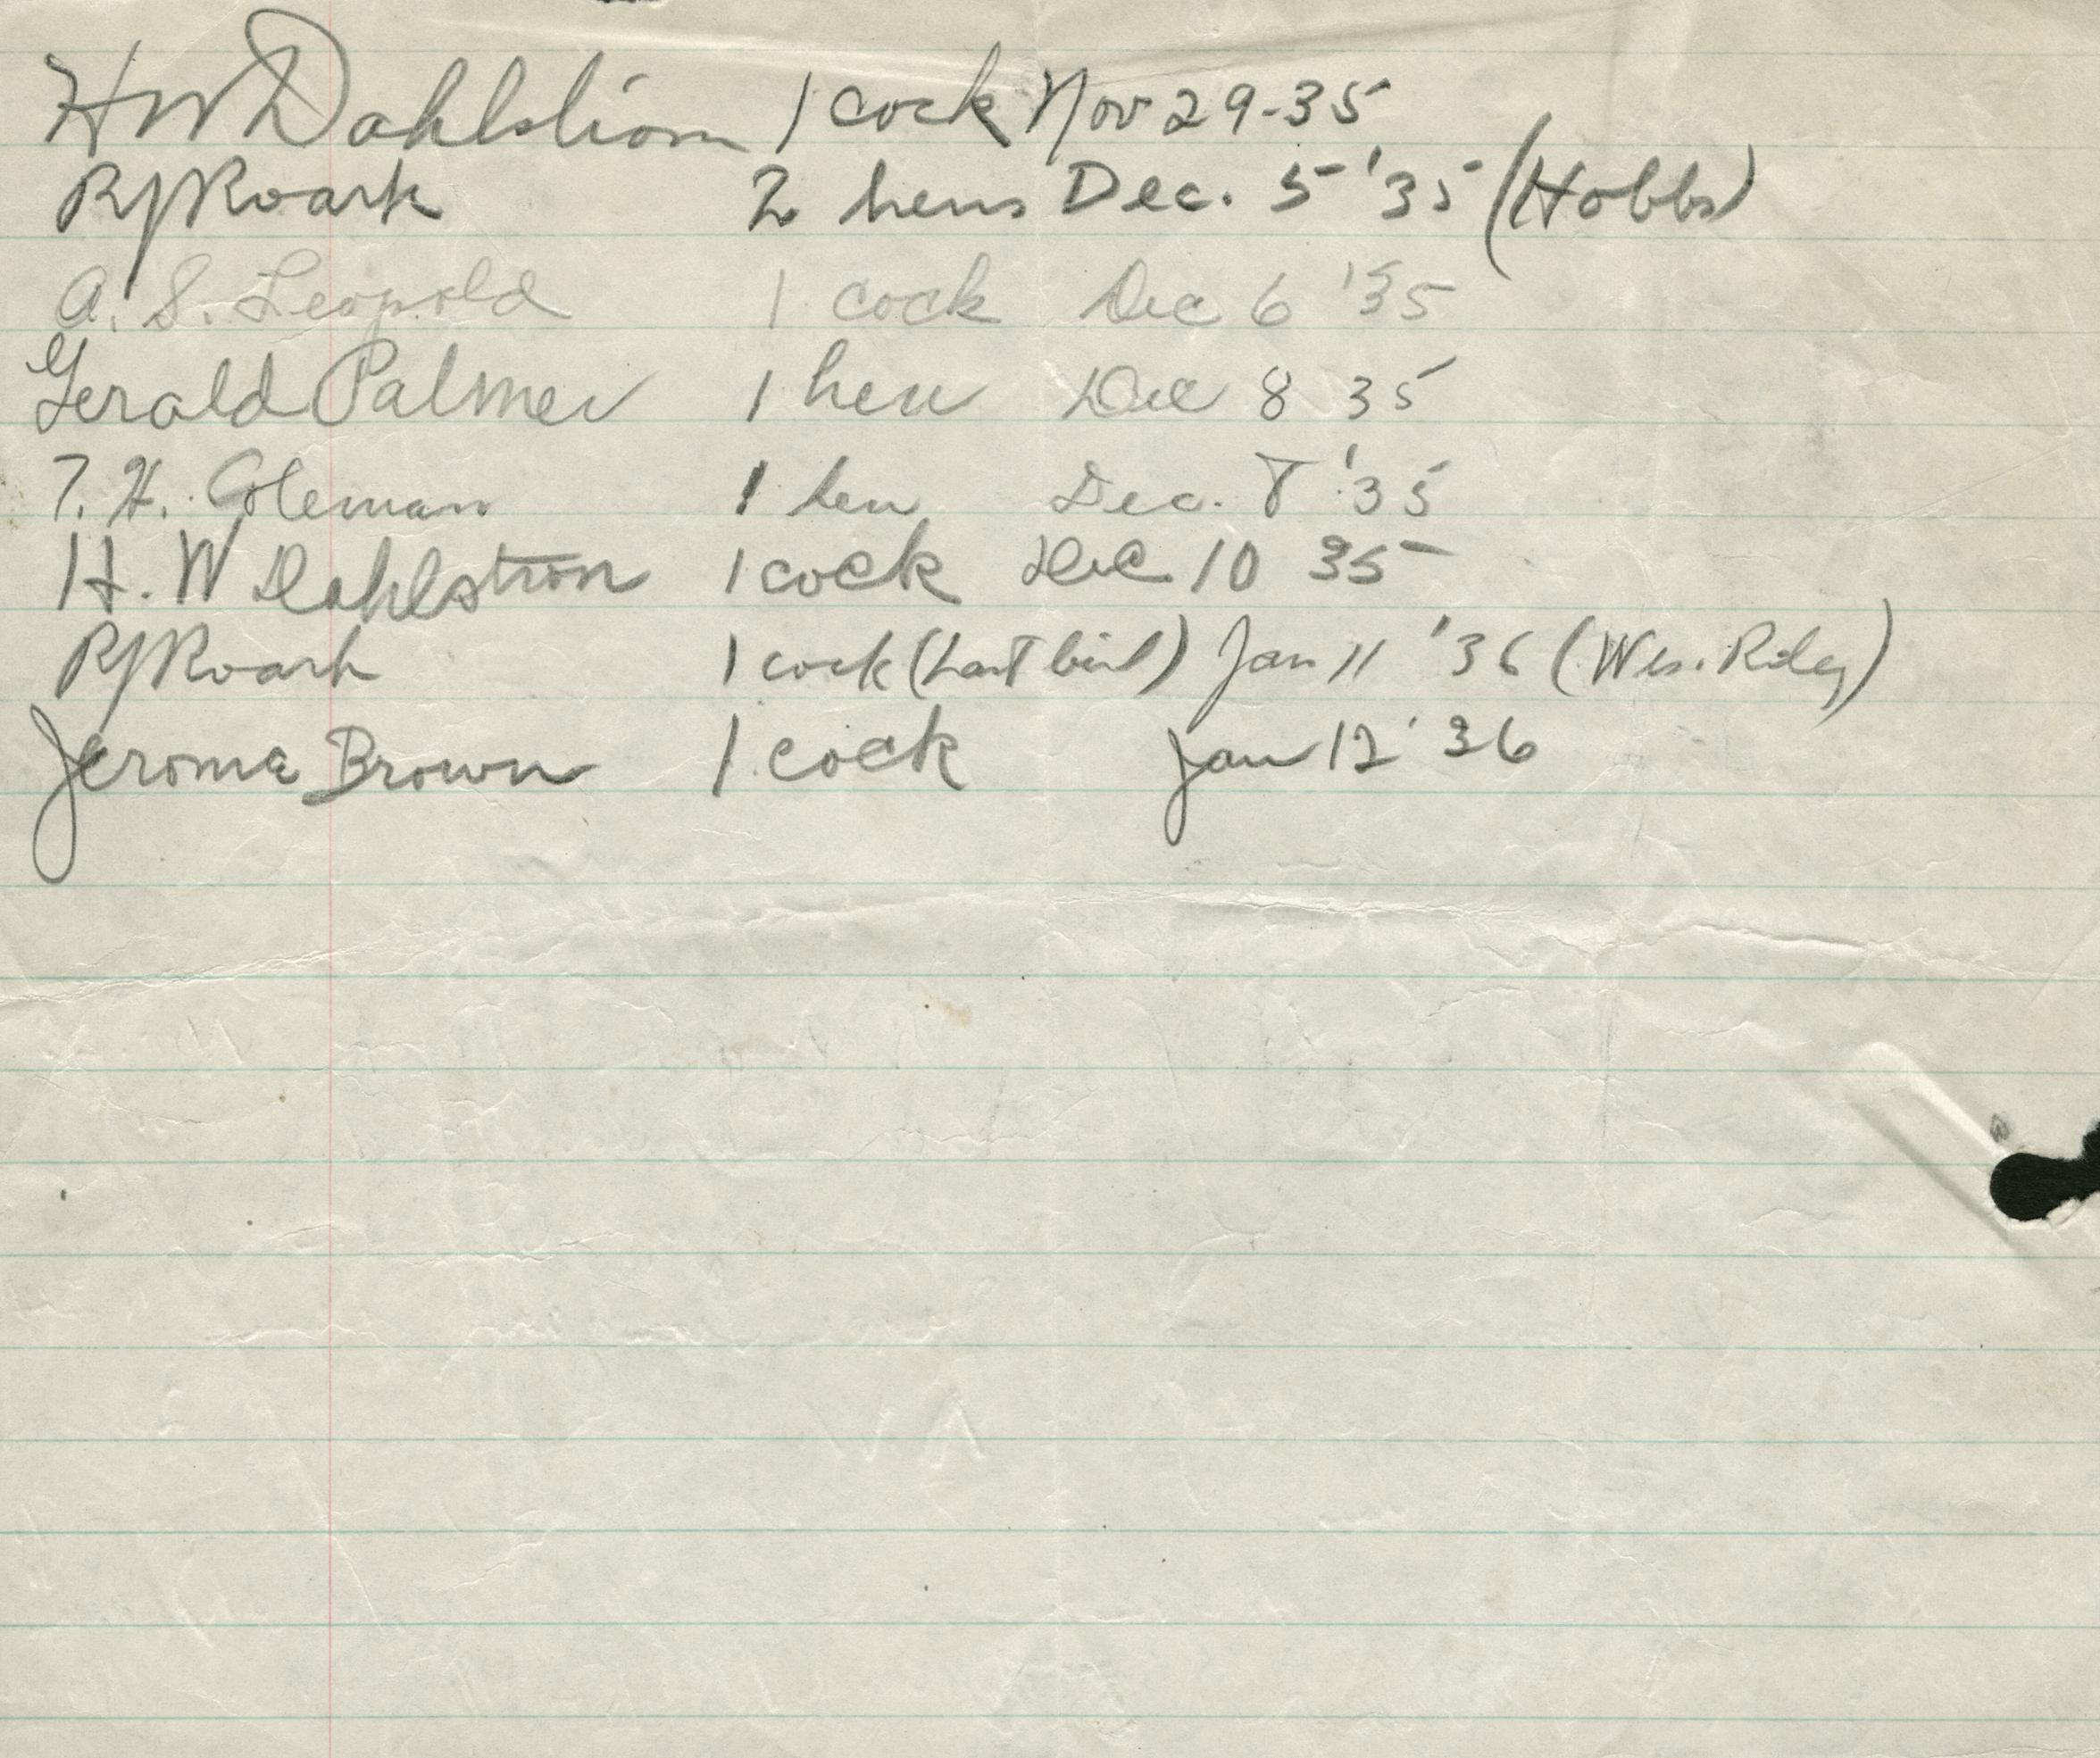 HW Dahlstrom 1 cock Nov 29-35
RJ Roark 2 hens Dec. 5 '35 (Hobbs)
A. S. Leopold 1 cock Dec 6 '35
Gerald Palmer 1 hen Dec 8 35
T. H. Coleman 1 hen Dec. 8 '35
H. W Dahlstrom 1 cock Dec 10 35
RJ Roark 1 cock (Last bird) Jan 11 '36 (Wes. Riley)
Jerome Brown 1 cock Jan 12 '36